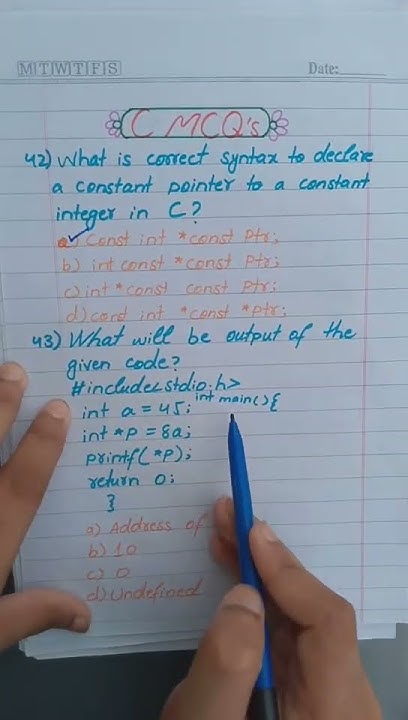 M T W T F S
Date:
C MCQ's
42) What is correct syntax to declare
a constant pointer to a constant
integer in C?
a) Const int *const Ptr;
b) int const *const Ptr;
c) int *const const ptr;
d) cord int *const *ptr;
43) What will be output of the
given code?
#include<stdio.h>
int main() {
int a = 45;
int *p = &a;
printf( *p);
return 0;
}
a) Address of
b) 10
c) 0
d) Undefined